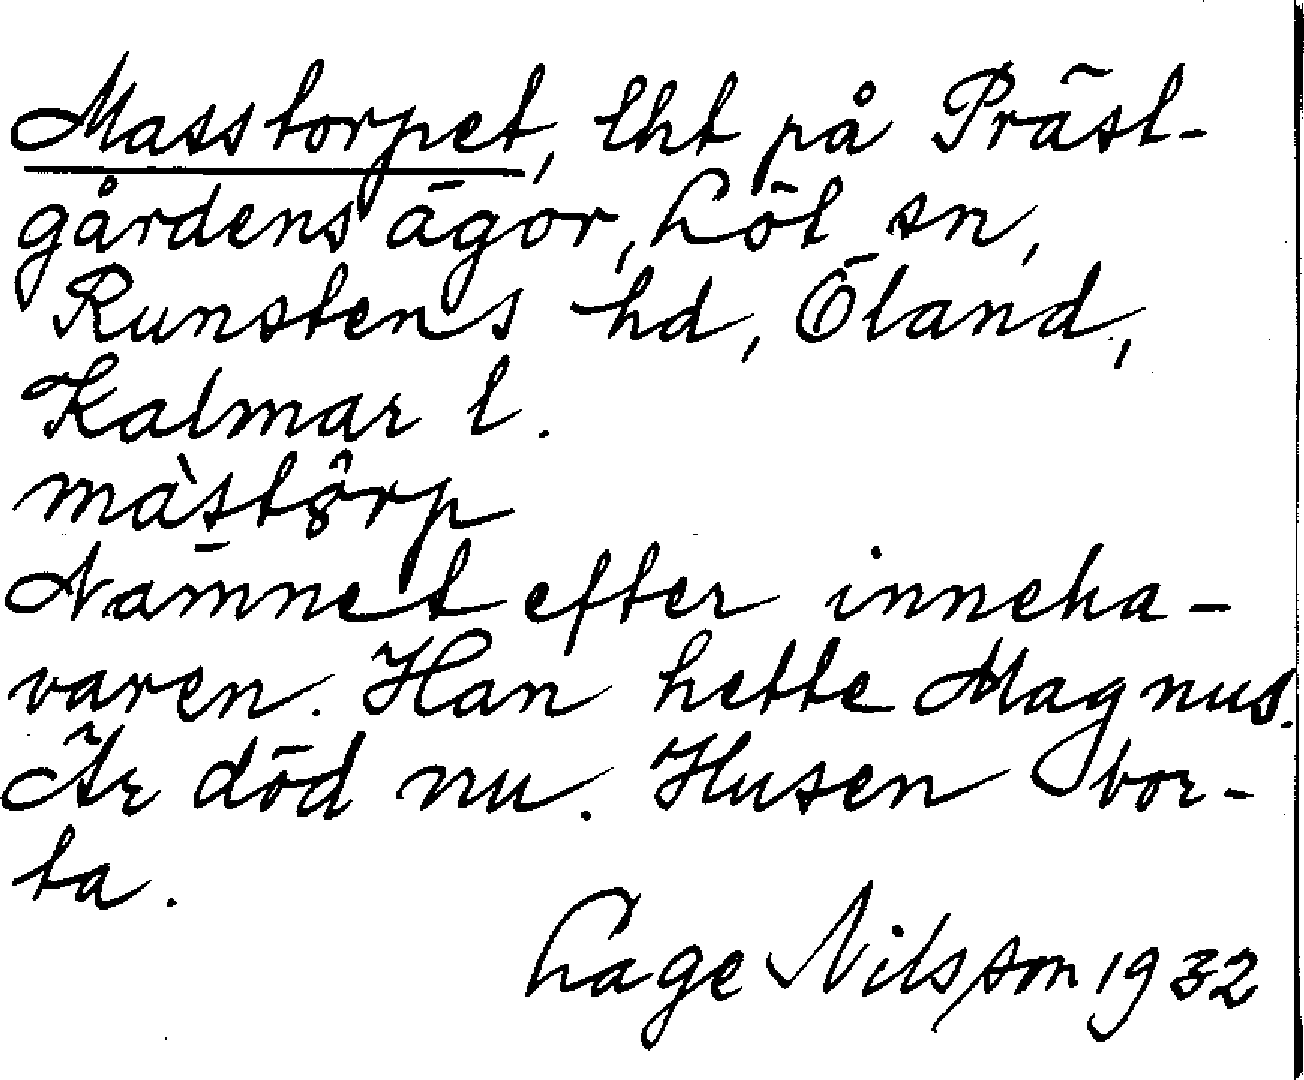 Masstorpet, lht på Präst-
gårdens ägor, Löt sn,
Runstens hd, Öland,
Kalmar l.
màstôrp
Nämnet efter inneha-
varen. Han hette Magnus.
Är död nu. Husen bor-
ta.
Lage Nilsson 1932